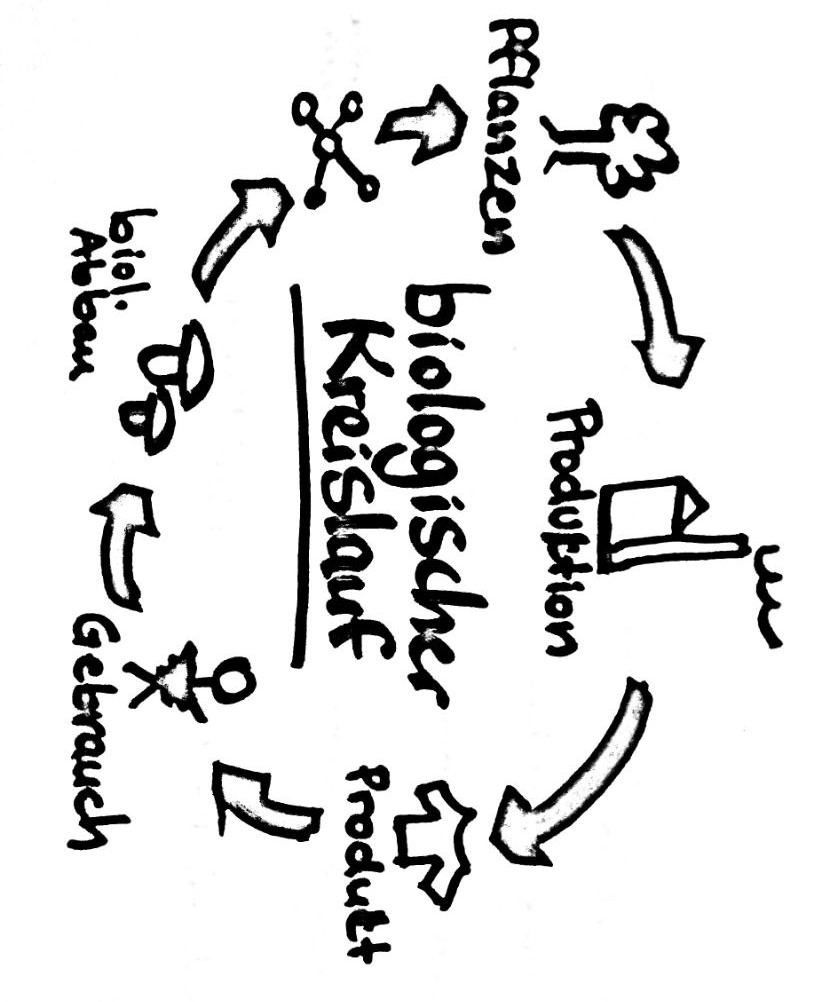 biologischer
Kreislauf
Pflanzen
Produktion
Produkt
Gebrauch
biol.
Abbau